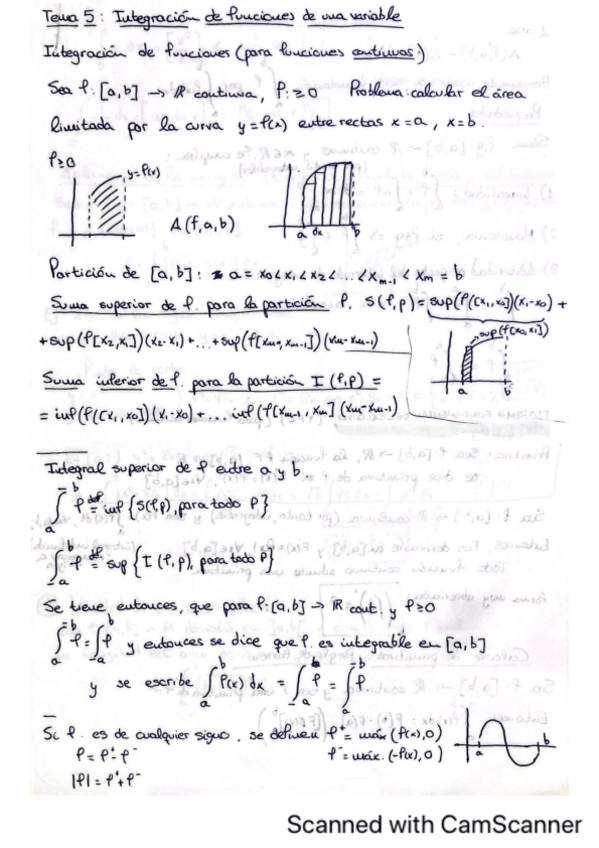 Tema 5: Integración de funciones de una variable
Integración de funciones (para funciones continuas)
Sea f: [a,b] → ℝ continua, f: ≥0 Problema: calcular el área
limitada por la curva y=f(x) entre rectas x=a, x=b.
f≥0
y=f(x)
A(f,a,b)
a dx b
Partición de [a,b]: a = x₀<x₁<x₂<...<xₘ₋₁<xₘ = b
Suma superior de f. para la partición P, S(f,p) = sup(f([x₁,x₀])(x₁-x₀) +
+ sup(f[x₂,x₁])(x₂-x₁)+...+sup(f[xₘ, xₘ₋₁])(xₘ-xₘ₋₁)
sup(f[x₀,x₁])
a b
Suma inferior de f. para la partición I (f,p) =
= inf(f([x₁,x₀])(x₁-x₀)+... inf(f[xₘ₋₁,xₘ](xₘ-xₘ₋₁)
Integral superior de f entre a y b.
∫ₐ⁻ᵇ f =def inf {S(f,p), para todo P}
∫₋ₐᵇ f =def sup {I (f,p), para todo P}
Se tiene entonces, que para f:[a,b] → ℝ cont. y f≥0
∫ₐ⁻ᵇ f = ∫₋ₐᵇ f y entonces se dice que f. es integrable en [a,b]
y se escribe ∫ₐᵇ f(x) dx = ∫₋ₐᵇ f = ∫ₐ⁻ᵇ f
Si f. es de cualquier signo, se definen f⁺ = máx (f(x),0)
f = f⁺ - f⁻ f⁻ = máx. (-f(x),0)
|f| = f⁺+f⁻
a b
Scanned with CamScanner